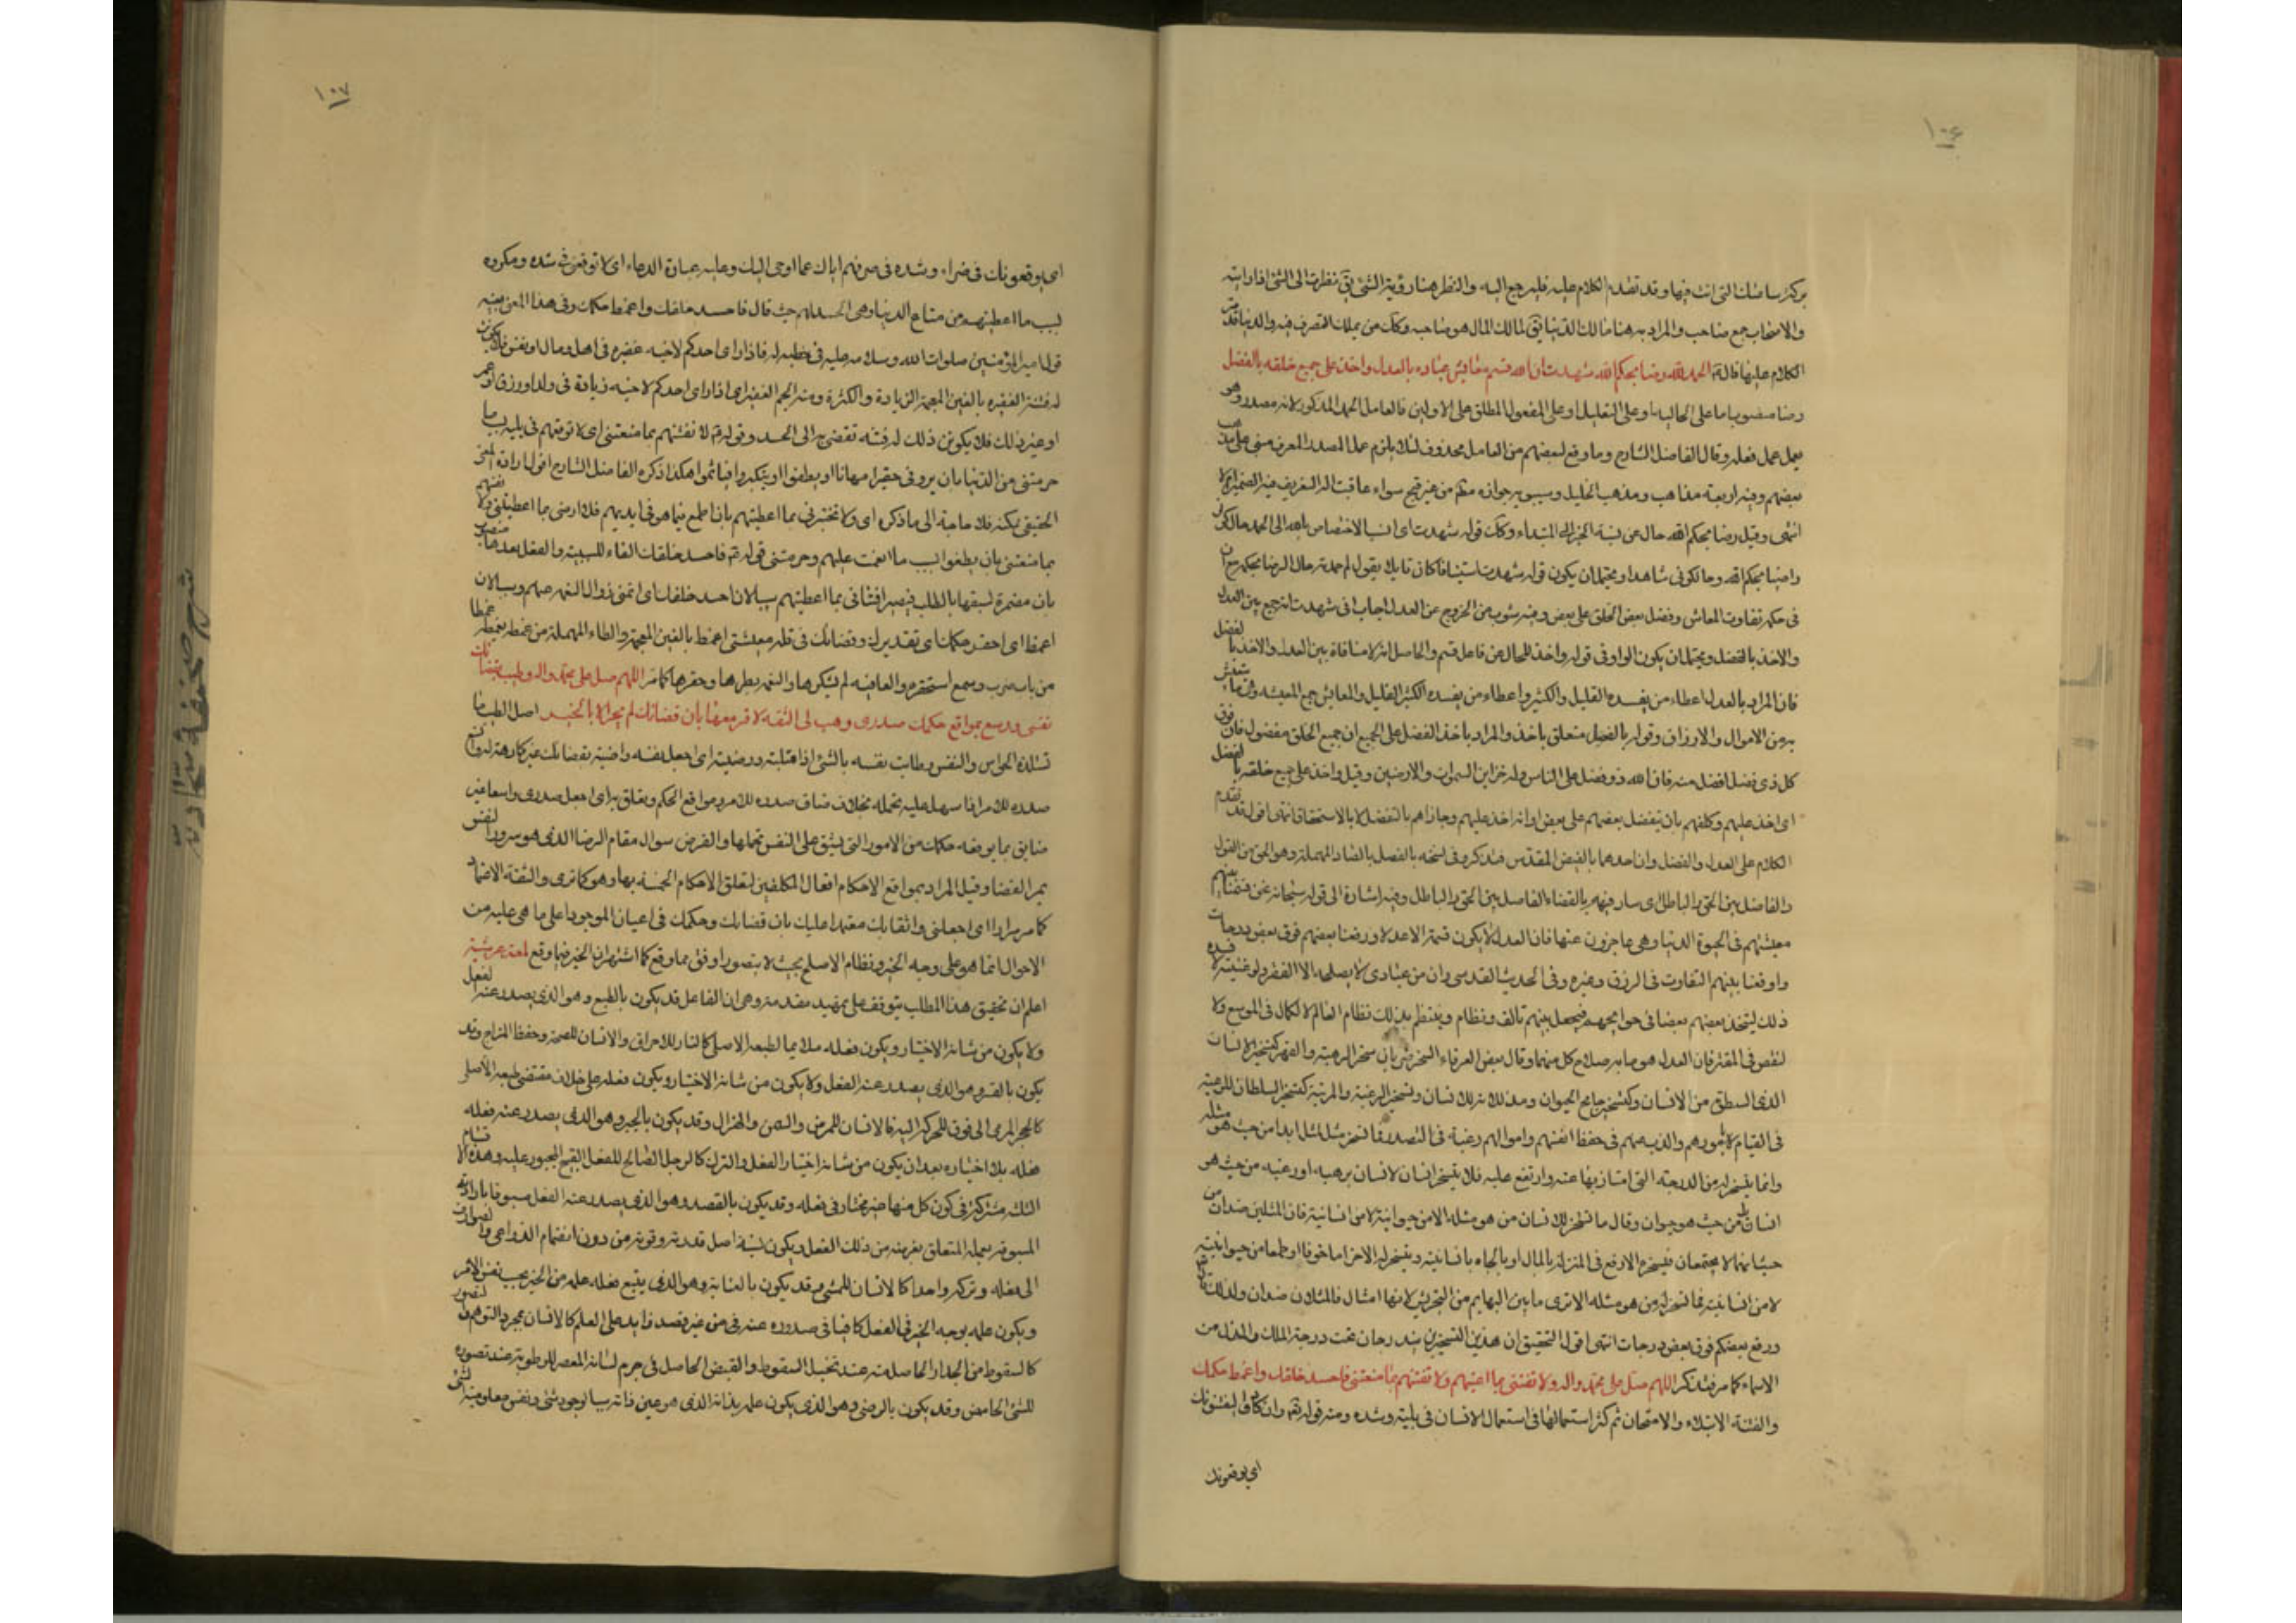 ١٠٦
بركة ساحتك التى انت فيها وقد تقدم الكلام عليه فليرجع اليه والنظر هنا رؤية الشئ يق نظرت الى الشئ اذا رايته
والاصحاب جمع صاحب والمراد به هنا مالك الدنيا يق لمالك المال هو صاحبه وكك من يملك التصرف فيه والدنيا قد مر
الكلام عليها قاله الحمد لله رضا بحكم الله شهدت ان الله قسم معايش عباده بالعدل واخذ على جميع خلقه بالفضل
رضا منصوب اما على الحالية او على التعليل او على المفعول المطلق على الاولين فالعامل الحمد المذكور لانه مصدر وهو
يعمل عمل فعله وقال الفاضل الشارح وما وقع لبعضهم من العامل محذوف لئلا يلزم عمل المصدر المعرف مبنى على مذهب
بعضهم وفيه اربعة مذاهب ومذهب الخليل وسيبويه جوازه مطلقا من غير قبح سواء عاقبت ال التعريف فيه الضمير ام لا
انتهى وقيل رضا بحكم الله حال عن نسبة الخبر الى المبتداء وكك قوله شهدت اى انسب الاختصاص بالله الى الحمد حال كونى
راضيا بحكم الله وحالكونى شاهدا ويحتمل ان يكون قوله شهدت استينافا كان قايلا يقول لم حمدته حال الرضا بحكمه مع ان
فى حكمه تفاوت المعاش وفضل بعض الخلق على بعض وفيه شوب من الخروج عن العدل اجاب انى شهدت انه جمع بين العدل
والاخذ بالفضل ويحتمل ان يكون الواو فى قوله واخذ للحال عن فاعل قسم والحاصل انه لا منافاة بين العدل والاخذ بالفضل
فان المراد بالعدل اعطاء من يفسده القليل والكثير واعطاء من يفسده الكثير القليل والمعايش جمع المعيشه وهى ما يتعيش
به من الاموال والارزاق وقوله بالفضل متعلق باخذ والمراد باخذ الفضل على الجميع ان جميع الخلق مفضول فان فوق
كل ذى فضل افضل منه فان الله ذو فضل على الناس وله خزاين السموات والارضين وقيل واخذ على جميع خلقه بالفضل
اى اخذ عليهم وكلفهم بان يتفضل بعضهم على بعض او انه اخذ عليهم وجازاهم بالتفضل لا بالاستحقاق انتهى اقول قد تقدم
الكلام على العدل والفضل وان احدهما بالفيض المقدس فتذكر وفى نسخه بالفصل بالصاد المهملة وهو الحق من القول
والفاصل بين الحق والباطل اى سار فيهم بالقضاء الفاصل بين الحق والباطل وفيه اشارة الى قوله سبحانه نحن قسمنا بينهم
معيشتهم فى الحيوة الدنيا وهى عاجزون عنها فان العدل لا يكون قسمة الا عدلا ورفعنا بعضهم فوق بعض درجات
واوقعنا بينهم التفاوت فى الرزق وغيره وفى الحديث القدسى وان من عبادى لا يصلحه الا الفقر ولو غنيته لافسده
ذلك ليتخذ بعضهم بعضا فى حوايجهم فيجعل بينهم تالف ونظام وينتظم بذلك نظام العالم لا لكمال فى الموسع ولا
لنقص فى المقتر فان العدل هو ما به صلاح كل منهما وقال بعض العرفاء السخر ضربان سخر الرهبة والقهر كتسخير الانسان
الذى السطق من الانسان وكتسخير جامح الحيوان وتسخير الرغبة والمرتبة كتسخير السلطان للرعية
فى القيام بامورهم والذب عنهم فى حفظ انفسهم واموالهم رغبة فى التصدر فالتسخر مثل لمثل ابدا من حيث هو مثله
وانما يتسخر له من الدرجة التى امتاز بها عنه وارتفع عليه فلا يتسخر انسان لانسان برهبه او رغبه من حيث هو
انسان بل من حيث هو حيوان وقال ما تسخر للانسان من هو مثله الا من حيوانيته لا من انسانيته فان المثلين ضدان من
حيث انهما لا يجتمعان فيسخره الارفع فى المنزلة بالمال او بالجاه بانسانيته ويتسخر له الاخر اما خوفا او طمعا من حيوانيته
لا من انسانيته فما تسخر له من هو مثله الا ترى ما بين البهايم من التحريش لانها امثال فالمثلان ضدان ولذلك قال
ورفع بعضكم فوق بعض درجات انتهى اقول التحقيق ان هذين التسخيرين يندرجان تحت درجة الملك والمذل من
الاسماء كما مر فتذكر اللهم صل على محمد واله ولا تفتنى بما اعطيتهم ولا تفتنهم بما منعتنى فاحسد خلقك واغمط حكمك
والفتنة الابتلاء والامتحان ثم كثر استعمالها فى استعمال الانسان فى بلية وشده ومنه قوله تع وان كادوا ليفتنونك
اى يوقعونك
١٠٧
اى يوقعونك فى ضراء وشده فى صرفهم اياك عما اوحى اليك وعليه عبارة الدعاء اى لا توقعنى فى شده ومكروه
بسبب ما اعطيتهم من متاع الدنيا وهى الحسد لهم حيث قال فاحسد خلقك واغمط حكمك وفى هذا المعنى بعينه
قول امير المؤمنين صلوات الله وسلامه عليه فى خطبه له فاذا راى احدكم لاخيه غفيره فى اهل او مال او نفس فلا يكونن
له فتنة الغفيره بالغين المعجمة الزيادة والكثرة ومنه الجم الغفير اى اذا راى احدكم لاخيه زيادة فى ولد او رزق او عمر
او غير ذلك فلا يكونن ذلك له فتنه تفضى الى الحسد وقوله ع لا تفتنهم بما منعتنى اى لا توقعهم فى بليه بسبب ما
حرمتنى من الدنيا بان يرونى حقيرا مهانا او يطغوا او يتكبروا فيأثموا هكذا ذكره الفاضل الشارح اقول ارادة المعنى
الحقيقى يمكنه فلا حاجة الى ما ذكره اى ولا تختبرنى بما اعطيتهم بان اطمع فيما هو فى ايديهم فلا ارضى بما اعطيتنى ولا تفتنهم
بما منعتنى بان يطغوا بسبب ما انعمت عليهم وحرمتنى قوله ع فاحسد خلقك الفاء للسببية والفعل بعدها منصوب
بان مضمرة لسبقها بالطلب فيصير افتتانى بما اعطيتهم سببا لان احسد خلقك اى اتمنى زوال النعم عنهم وسببا لان
اغمط اى احقر حكمك اى تقديرك وقضائك فى قلة معيشتى اغمط بالغين المعجمة والطاء المهملة من غمطه يغمطه غمطا
من باب ضرب وسمع استحقره والعافيه لم يشكرها والنعمة بطرها وحقرها كما مر اللهم صل على محمد واله وطيب بقضائك
نفسى ووسع بمواقع حكمك صدرى وهب لى الثقة لاقر معها بان قضائك لم يجر الا بالخيره اصل الطيب ما
تستلذه الحواس والنفس وطابت نفسه بالشئ اذا قبلته ورضيت اى اجعل نفسه راضية بقضائك غير كارهة له واتسع
صدره للامر اذا سهل عليه تحمله بخلاف ضاق صدره للامر ومواقع الحكم ويتعلق به اى اجعل صدرى واسعا غير
ضايق بما يوقعه حكمك من الامور التى يشق على النفس تحملها والغرض سوال مقام الرضا الذى هو سرور النفس
بمر القضا وقيل المراد بمواقع الاحكام افعال المكلفين لتعلق الاحكام الخمسة بها وهو كما ترى والثقة الاعتماد
كما مر مرارا اى اجعلنى واثقا بك معتمدا عليك بان قضائك وحكمك فى اعيان الموجودا على ما هى عليه من
الاحوال انما هو على وجه الخير ونظام الاصلح بحيث لا يتصور اوفق مما وقع كما اشتهر ان الخير فيما وقع لمعة عرشية
اعلم ان تحقيق هذا المطلب يتوقف على تمهيد مقدمة وهى ان الفاعل قد يكون بالطبع وهو الذى يصدر عنه الفعل
ولا يكون من شانه الاختيار ويكون فعله ملايما لطبعه الاصلى كالنار للاحراق والانسان للصحة وحفظ المزاج وقد
يكون بالقسر وهو الذى يصدر عنه الفعل ولا يكون من شانه الاختيار ويكون فعله على خلاف مقتضى طبعه الاصلى
كالحجر المرمى الى فوق للحركة اليه فالانسان للمرض والسمن والهزال وقد يكون بالجبر وهو الذى يصدر عنه فعله
فعله بلا اختياره بعد ان يكون من شانه اختيار الفعل والترك كالرجل الصالح للفعل القبيح المجبور عليه وهذه الاقسام
الثلثه مشتركة فى كون كل منها غير مختار فى فعله وقد يكون بالقصد وهو الذى يصدر عنه الفعل مسبوقا بارادته
المسبوقه بعلمه المتعلق بغرضه من ذلك الفعل ويكون نسبة اصل قدرته وقوته من دون انضمام الدواعى والصوارف
الى فعله وتركه واحدا كالانسان للمشى وقد يكون بالعناية وهو الذى يتبع فعله علمه من الخير بحسب نفس الامر
ويكون علمه بوجه الخير فى الفعل كافيا فى صدوره عنه فى من غير قصد زايد على العلم كالانسان بمجرد التوهم او تصور
كالسقوط من الجدار الحاصل منه عند تخيل السقوط والقبض الحاصل فى جرم لسانه المعصر للرطوبة عند تصوره
للشئ الحامض وقد يكون بالرضى وهو الذى يكون علمه بذاته الذى هو عين ذاته سببا لوجود شئ ونفس معلوميه الشئ
شرح صحيفه سجاديه